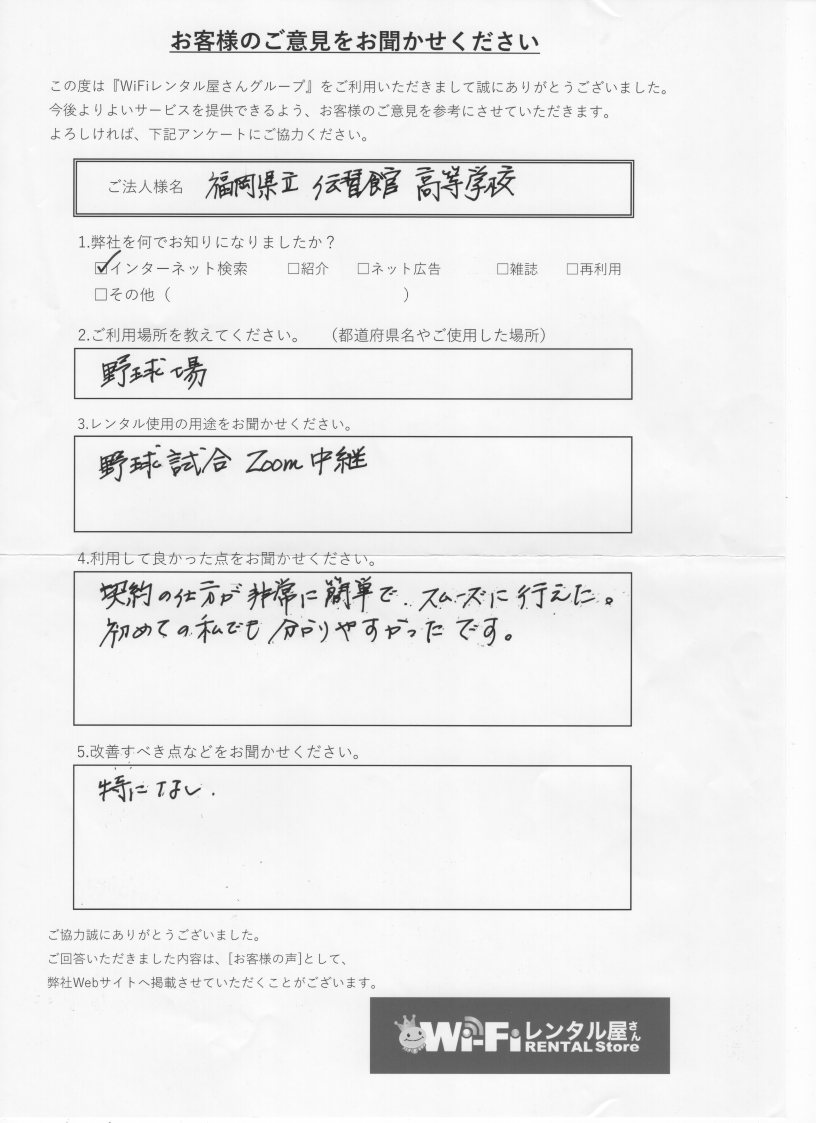 お客様のご意見をお聞かせください
この度は『WiFiレンタル屋さんグループ』をご利用いただきまして誠にありがとうございました。
今後よりよいサービスを提供できるよう、お客様のご意見を参考にさせていただきます。
よろしければ、下記アンケートにご協力ください。
ご法人様名 福岡県立 伝習館 高等学校
1.弊社を何でお知りになりましたか？
☑インターネット検索 □紹介 □ネット広告 □雑誌 □再利用
□その他（ ）
2.ご利用場所を教えてください。 （都道府県名やご使用した場所）
野球場
3.レンタル使用の用途をお聞かせください。
野球試合 Zoom中継
4.利用して良かった点をお聞かせください。
契約の仕方が非常に簡単で、スムーズに行えた。
初めての私でも分かりやすかったです。
5.改善すべき点などをお聞かせください。
特になし.
ご協力誠にありがとうございました。
ご回答いただきました内容は、[お客様の声]として、
弊社Webサイトへ掲載させていただくことがございます。
Wi-Fiレンタル屋さん
RENTAL Store